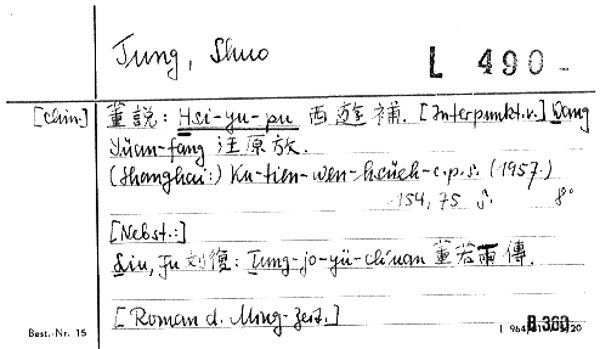 Tung, Shuo
L 490-
[Chin.] 董説: Hsi-yu-pu 西遊補. [Interpunkt. v.] Wang
Yüan-fang 汪原放.
(Shanghai:) Ku-tien-wen-hsüeh-c.p.s. (1957.)
154, 75 S. 8°
[Nebst:]
Liu, Fu 刘復: Tung-jo-yü-ch'uan 董若雨傳.
[Roman d. Ming-Zeit.]
Best.-Nr. 15
B 360